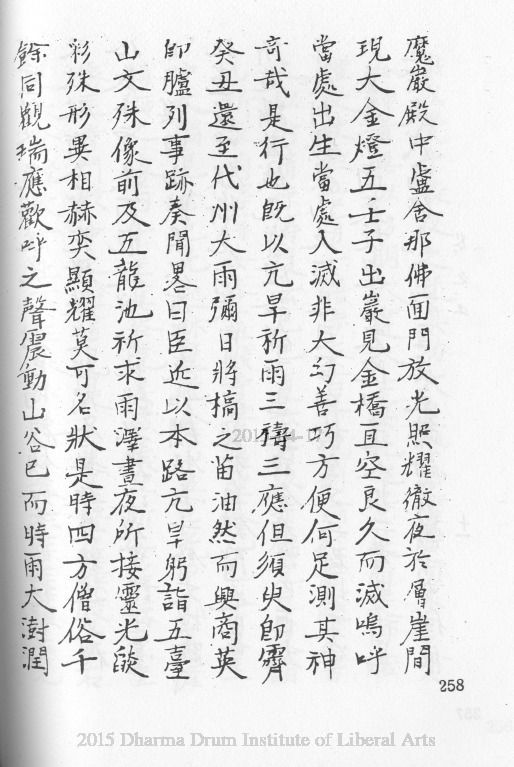 魔巖殿中盧舍那佛面門放光照耀徹夜於層崖間
現大金燈五壬子出巖見金橋亙空良久而滅嗚呼
當處出生當處入滅非大幻善巧方便何足測其神
奇哉是行也既以亢旱祈雨三禱三應但須臾即霽
癸丑還至代州大雨彌日將槁之苗油然而興商英
即臚列事跡奏聞畧曰臣近以本路亢旱躬詣五臺
山文殊像前及五龍池祈求雨澤晝夜所接靈光燄
彩殊形異相赫奕顯耀莫可名狀是時四方僧俗千
餘同觀瑞應歡呼之聲震動山谷已而時雨大澍潤
258
2015 Dharma Drum Institute of Liberal Arts